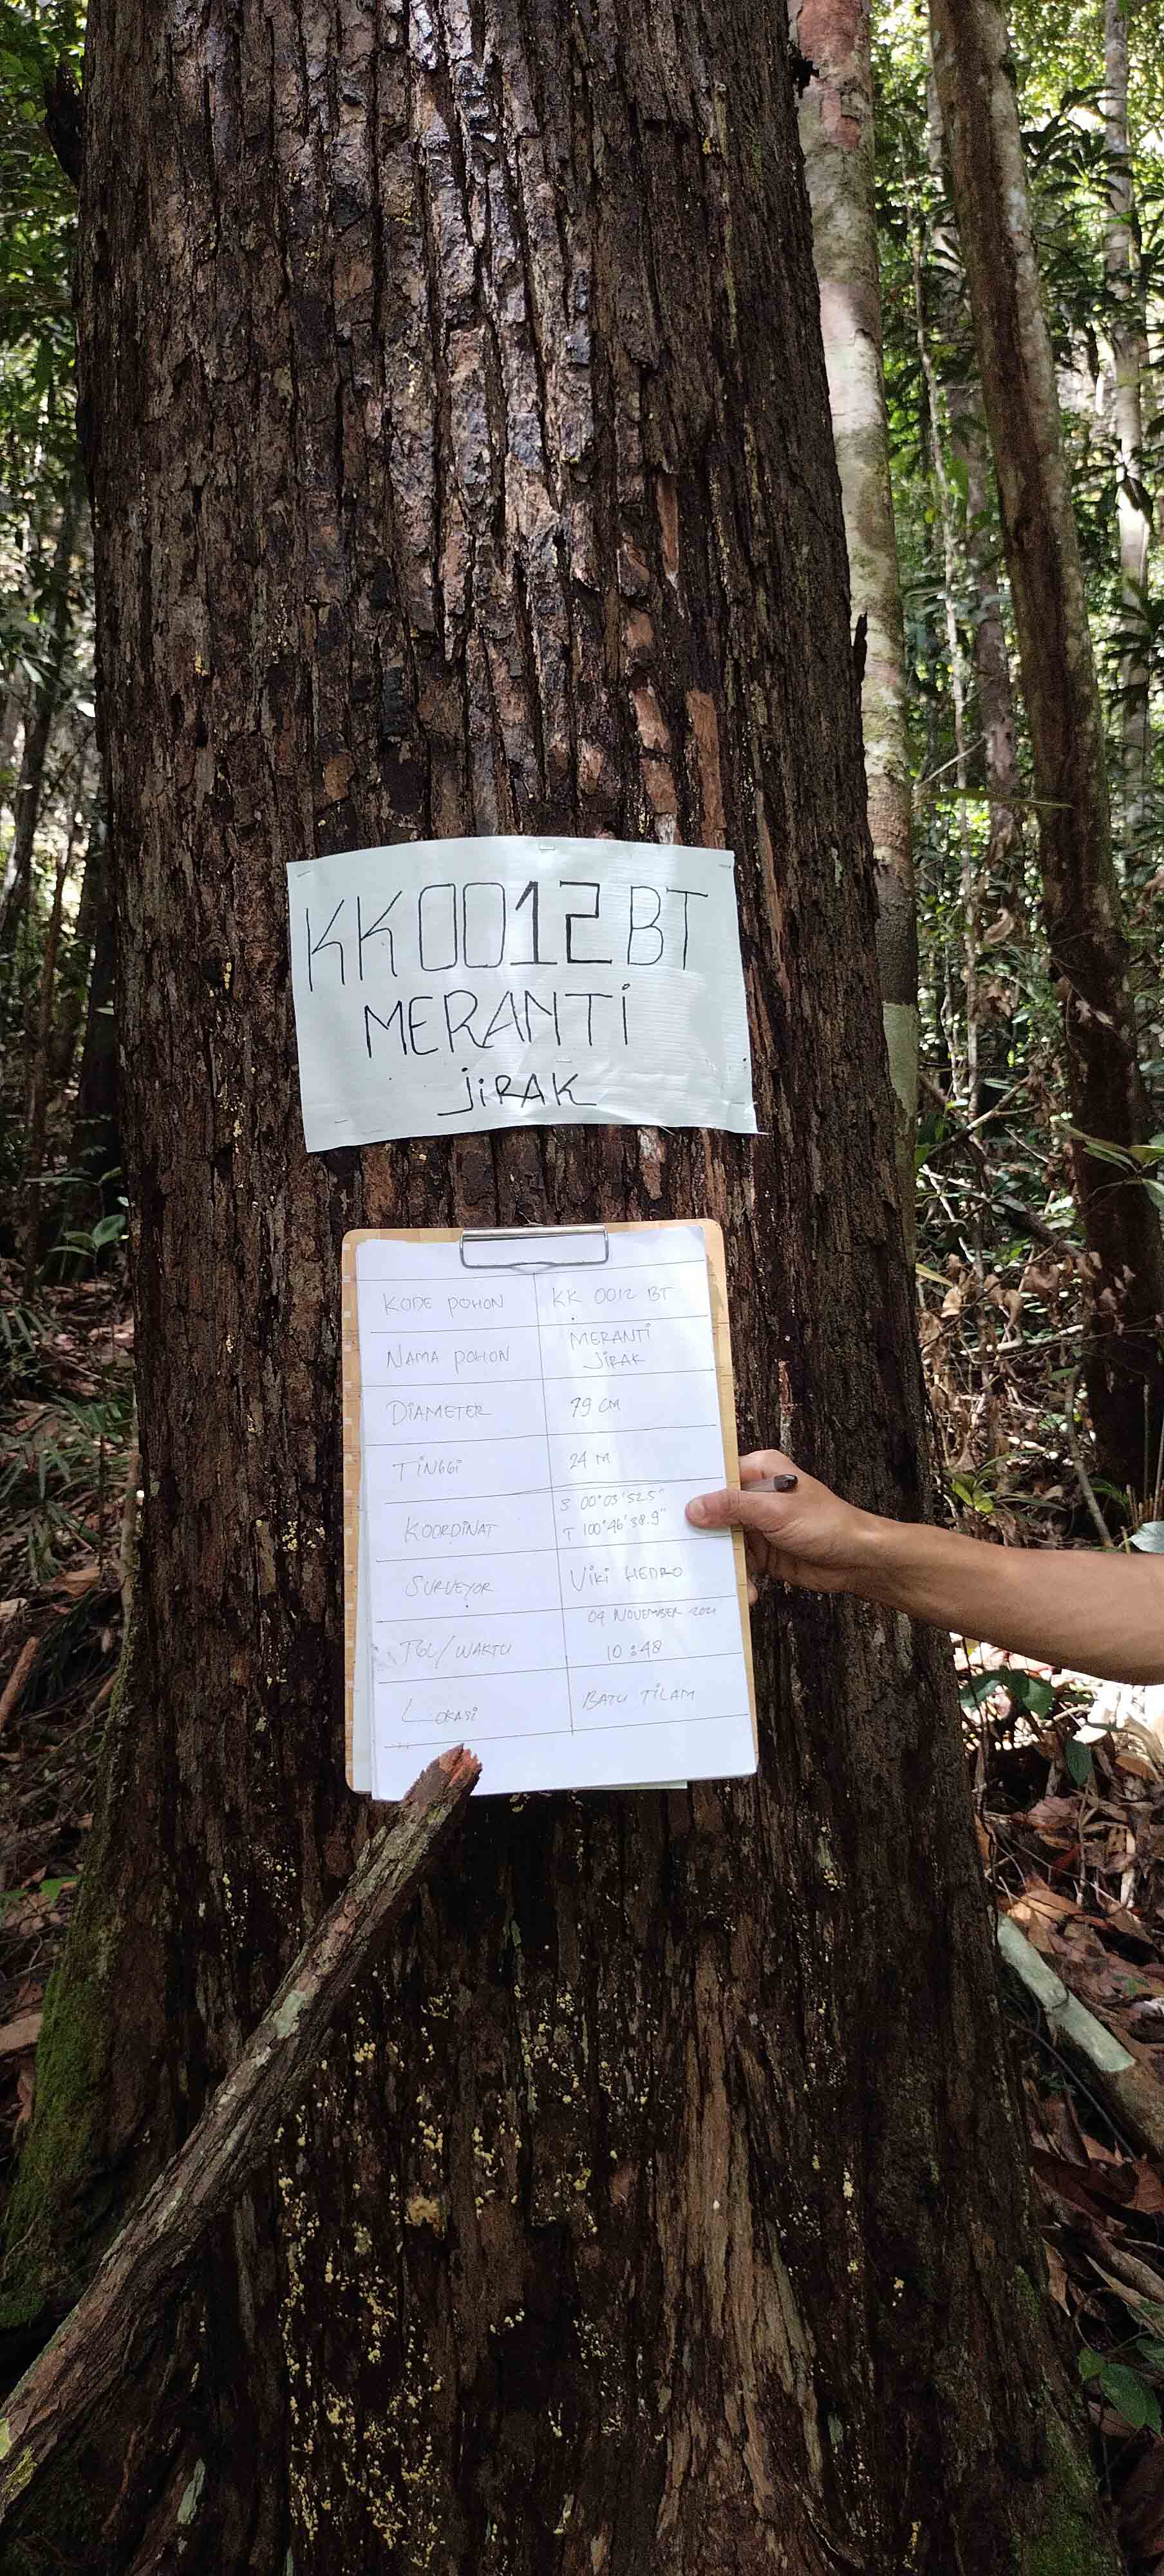 KK0012BT
MERANTI
JIRAK
KODE POHON KK 0012 BT
NAMA POHON MERANTI JIRAK
DIAMETER 79 CM
TINGGI 24 M
KOORDINAT S 00°03'52.5"
T 100°46'38.9"
SURVEYOR VIKI HEDRO
TGL/WAKTU 04 NOVEMBER 2021
10:48
LOKASI BATU TILAM